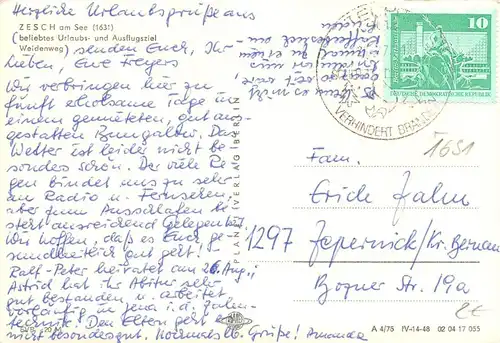 Herzliche Urlaubsgrüße aus
ZESCH am See (1631)
(beliebtes Urlaubs- und Ausflugsziel
Weidenweg) senden Euch, Ihr
Lieben, Eure Freyers
Wir verbringen hier zu
fünft erholsame Tage in
einem gemüteten, gut aus-
gestatten Bungalow. Das
Wetter ist leider nicht be-
sonders schön. Der viele Re-
gen bindet uns zu sehr
an Radio u. Fernsehen
aber zum Ausschlafen be-
steht ausreichend Gelegenheit.
Wir hoffen, daß es Euch ge-
sundheitlich gut geht!
Ralf-Peter heiratet am 26. Aug.,
Astrid hat ihr Abitur sehr
gut bestanden u. arbeitet
vorläufig in Jena i. d.
technik. Den Eltern geht es
nicht besonders gut. Nochmals lb. Grüße! Amanda
PLANET-VERLAG BERLIN
10
DEUTSCHE DEMOKRATISCHE REPUBLIK
VERHINDERT
1631
Fam.
Erich Jalm
1297 Zepernick/Kr. Bernau
Bozner Str. 19a
2€
A 4/75 IV-14-48 02 04 17 055